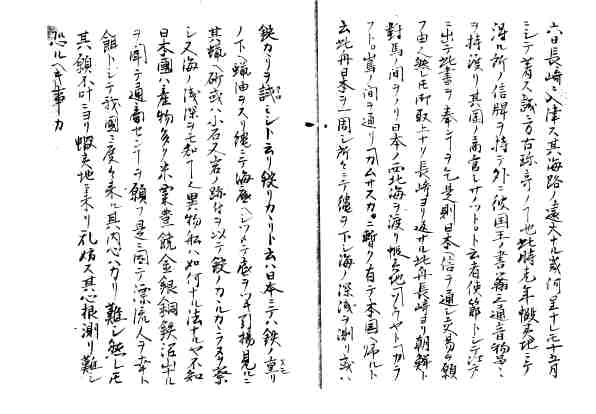 六日長崎ニ入津ス其海路ノ遠大ナル幾何里ナレモ十五月
ニシテ着ス誠ニ万古珍奇ノヿ也此時先年蝦夷地ニテ
得ル所ノ信牌ヲ持テ外ニ彼国王ノ書翰ニ通音物等
ヲ持渡リ其国ノ高官レサノットト云者使節トシテ江戸
ニ出テ此書ヲ奉ンヿヲ乞是則日本ヘ信ヲ通シ交易ヲ願
フ由ナレモ御取上ナク長崎ヨリ返サル此舟長崎ヨリ朝鮮ト
對馬ノ間ヲノリ日本ノ西北海ヲ渡リ蝦夷地ソウヤトカラ
フト嶌ノ間ヲ通リカムサスカニ暫ク有テ本国ヘ帰ルト
云此舟日本ヲ一周シ所々ニテ縄ヲ下シ海ノ深浅ヲ測リ或ハ
鉄カリヲ試ミント云リ鉄リカリト云ハ日本ニテハ鉄ノ重リ
ノ下ヘ蝋油ヲスリ縄ニテ海底ヘシツメテ底ヲツキ引揚見ルニ
其蝋ヘ砂或ハ小石又岩ノ跡付ヲ以テ鉄ノカルカラヌヲ察
シ又海ノ浅深ヲモ知ト異物船ハ如何ナル法ルヤ不知
日本國ハ産物多ク米粟豊饒金銀銅鉄出ル
ヲ聞テ通商センヿヲ願フ是ニ因テ漂流人ヲ幸ト
餌トシテ我國ニ度々来ル其内心ハカリ難シ然レモ
其願不叶ニヨリ蝦夷地ニ来リ乱妨ス其心根測リ難シ
恐ルヘキ事カ